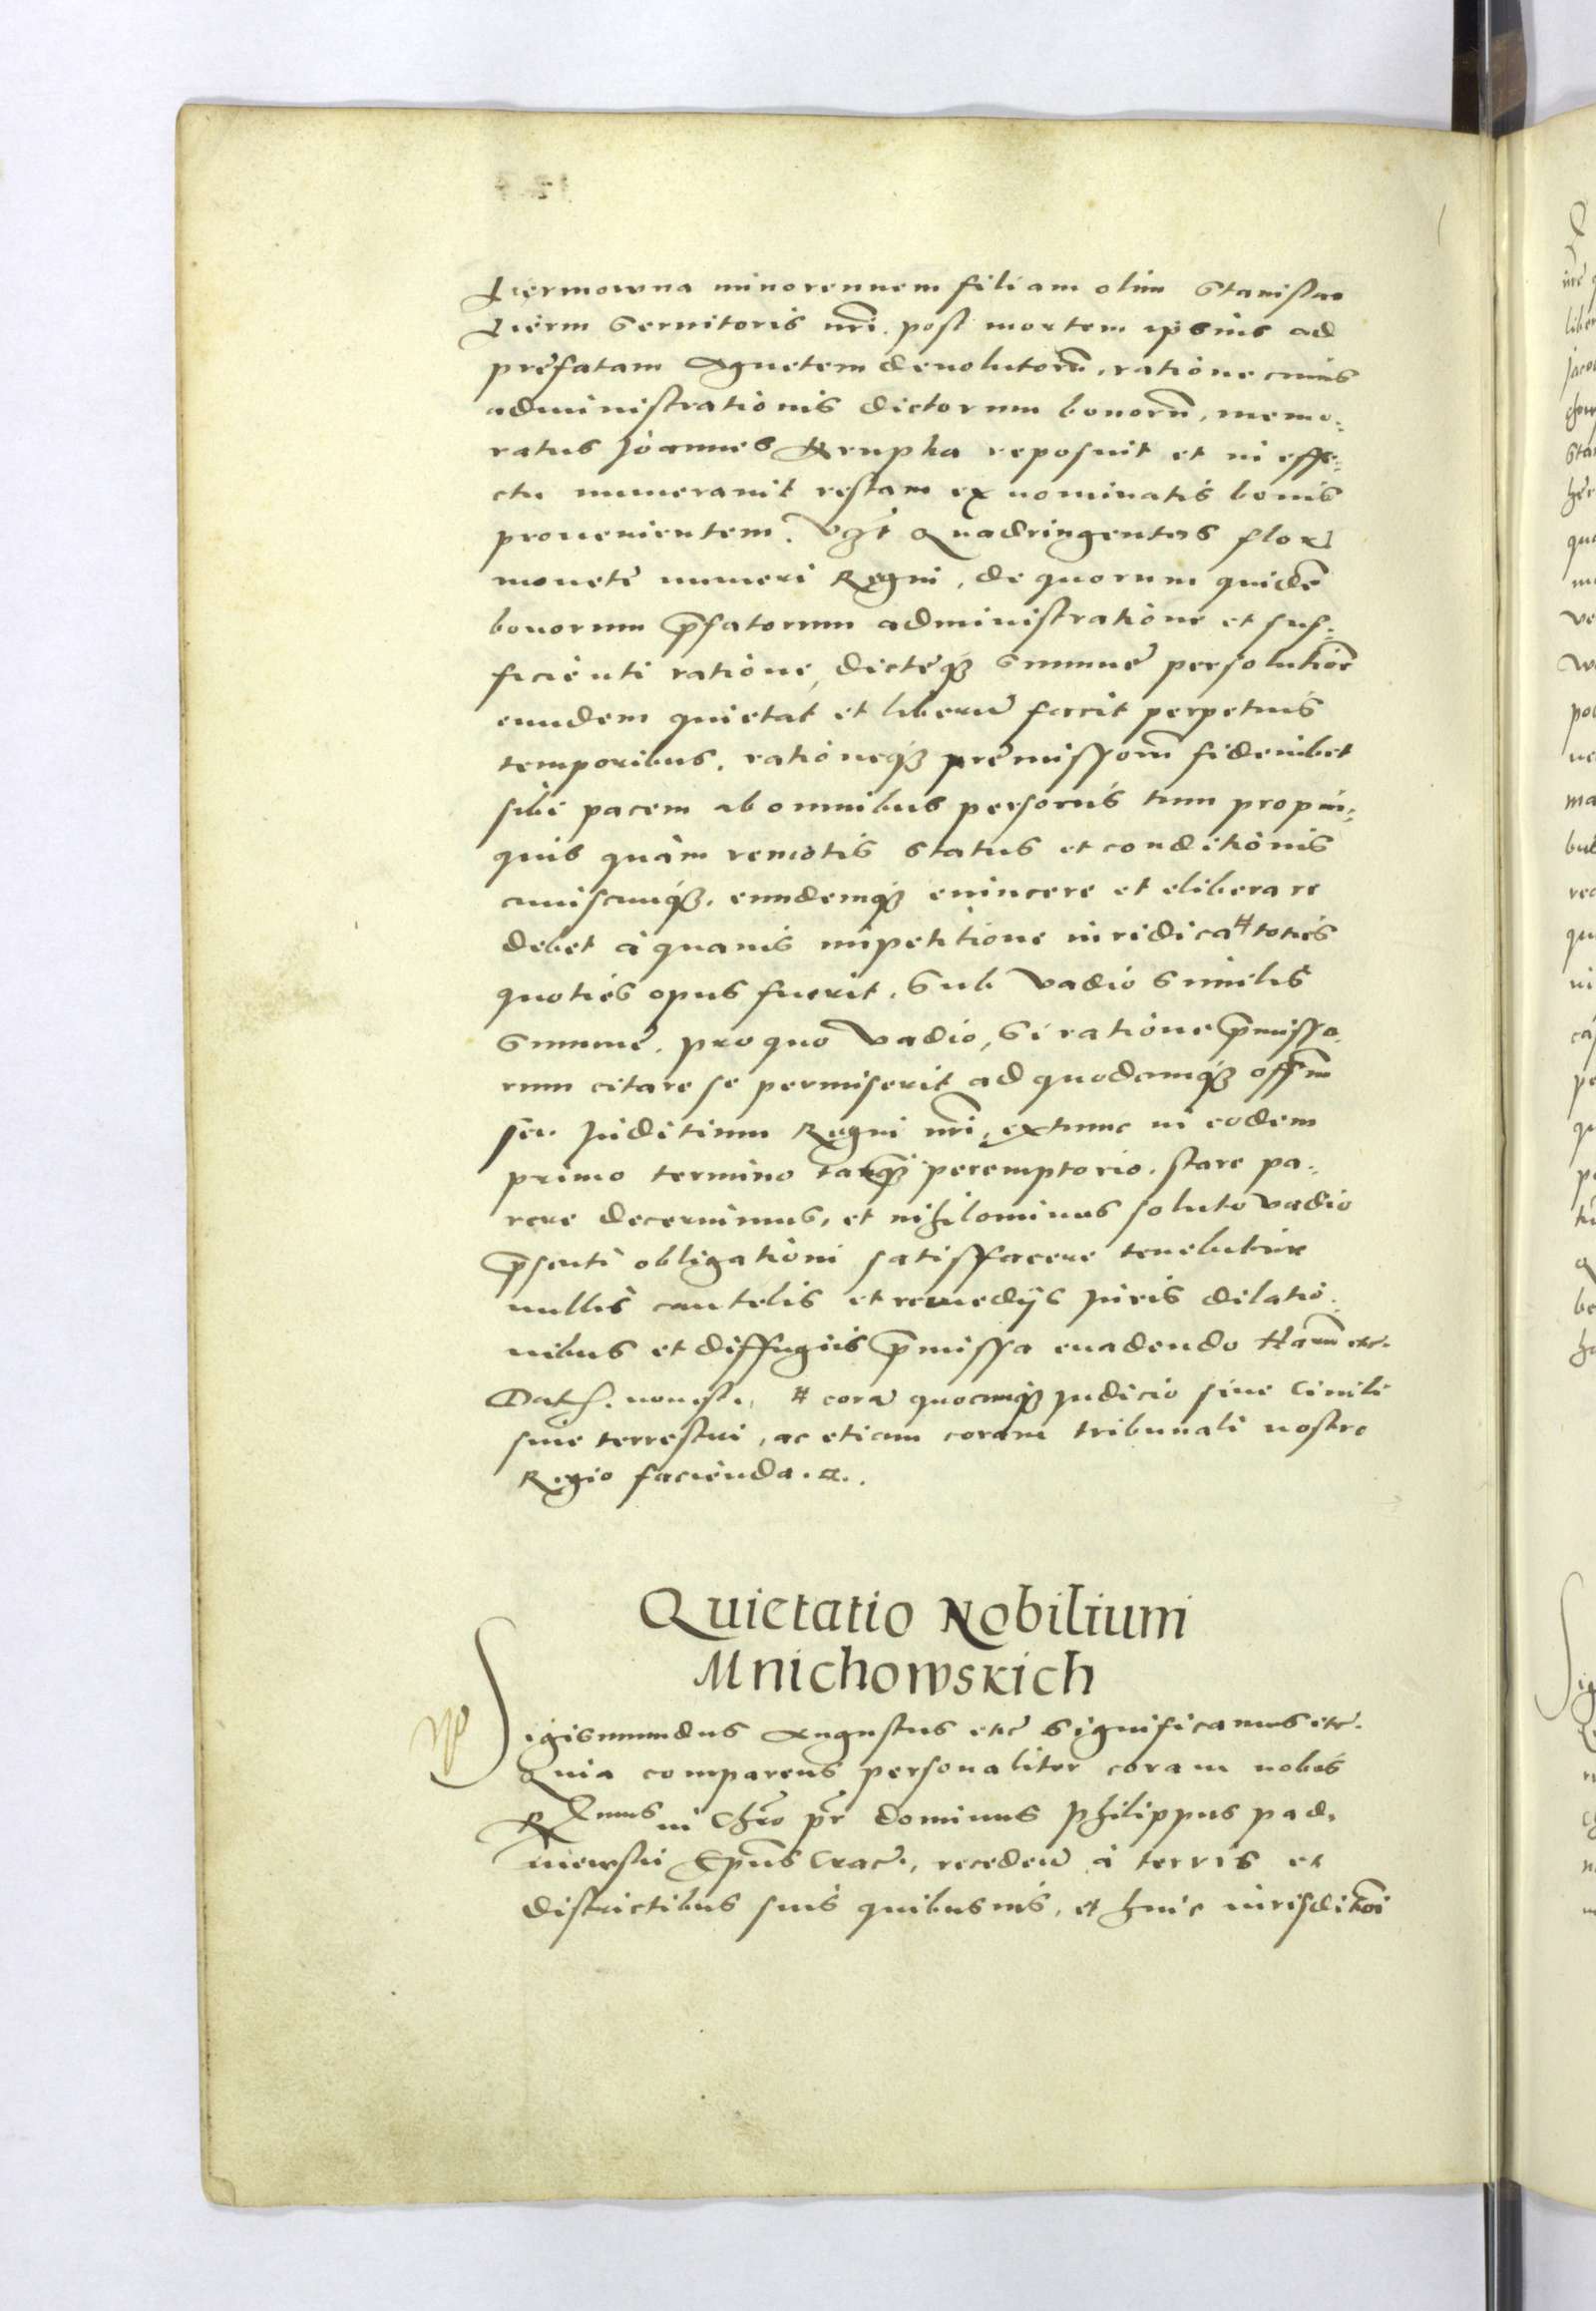 Piermowna minorennem filiam olim Stanislai
Pierm Servitoris nri. post mortem ipsius ad
prefatam Agnetem devolutorũ, ratione cuius
administrationis dictorum bonorũ, memo:
ratus Joannes Krupka reposuit et in effe:
ctu numeravit restam ex nominatis bonis
provenientem. Vzt Quadringentos flor
monete numeri Regni, de quorum quidẽ
bonorum pfatorum administratione et suf:
ficienti ratione, dicteq3 summe persolutiõe
eundem quietat et liberũ facit perpetuis
temporibus, rationeq3 premissorũ fideiubet
sibi pacem ab omnibus personis tum propin:
quis quàm remotis status et conditionis
cuiuscunq3, eundemq3 evincere et eliberare
debet à quavis impetitione iuridica # toties
quoties opus fuerit. Sub vadio similis
summe. pro quo vadio, si ratione pmisso:
rum citare se permiserit ad quodcunq3 offm
seu Juditium Regni nri, extunc in eodem
primo termino tanq3 peremptorio, stare pa:
rere decernimus, et nihilominus soluto vadio
psenti obligationi satisfacere tenebitur
nullis cautelis et remediis Juris dilatio:
nibus et diffugiis pmissa evadendo Harũ etc.
Dat. non est. # corã quocunq3 Judicio sive Civili
sive terrestri, ac etiam coram tribunali nostro
Regio facienda. #.
Quietatio Nobilium
Mnichowskich
Sigismundus Augustus etc Significamus etc.
Quia comparens personaliter coram nobis
Rndmus in Chro pr dominus Philippus pad:
niewski Epũs Crac., recedeñ à terris et
districtibus suis quibusvis, et huic iurisditioni